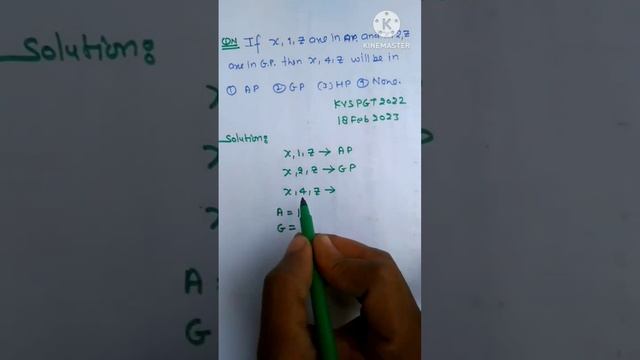 Solution:
QN If x, 1, z are in AP, and 2, z
are in G.P. then x, 4, z will be in
① AP ② GP (3) HP ④ None.
KVS PGT 2022
18 Feb 2023
Solution:
x, 1, z → AP
x, 2, z → GP
x, 4, z →
A = 1
G =
A
G
KINEMASTER